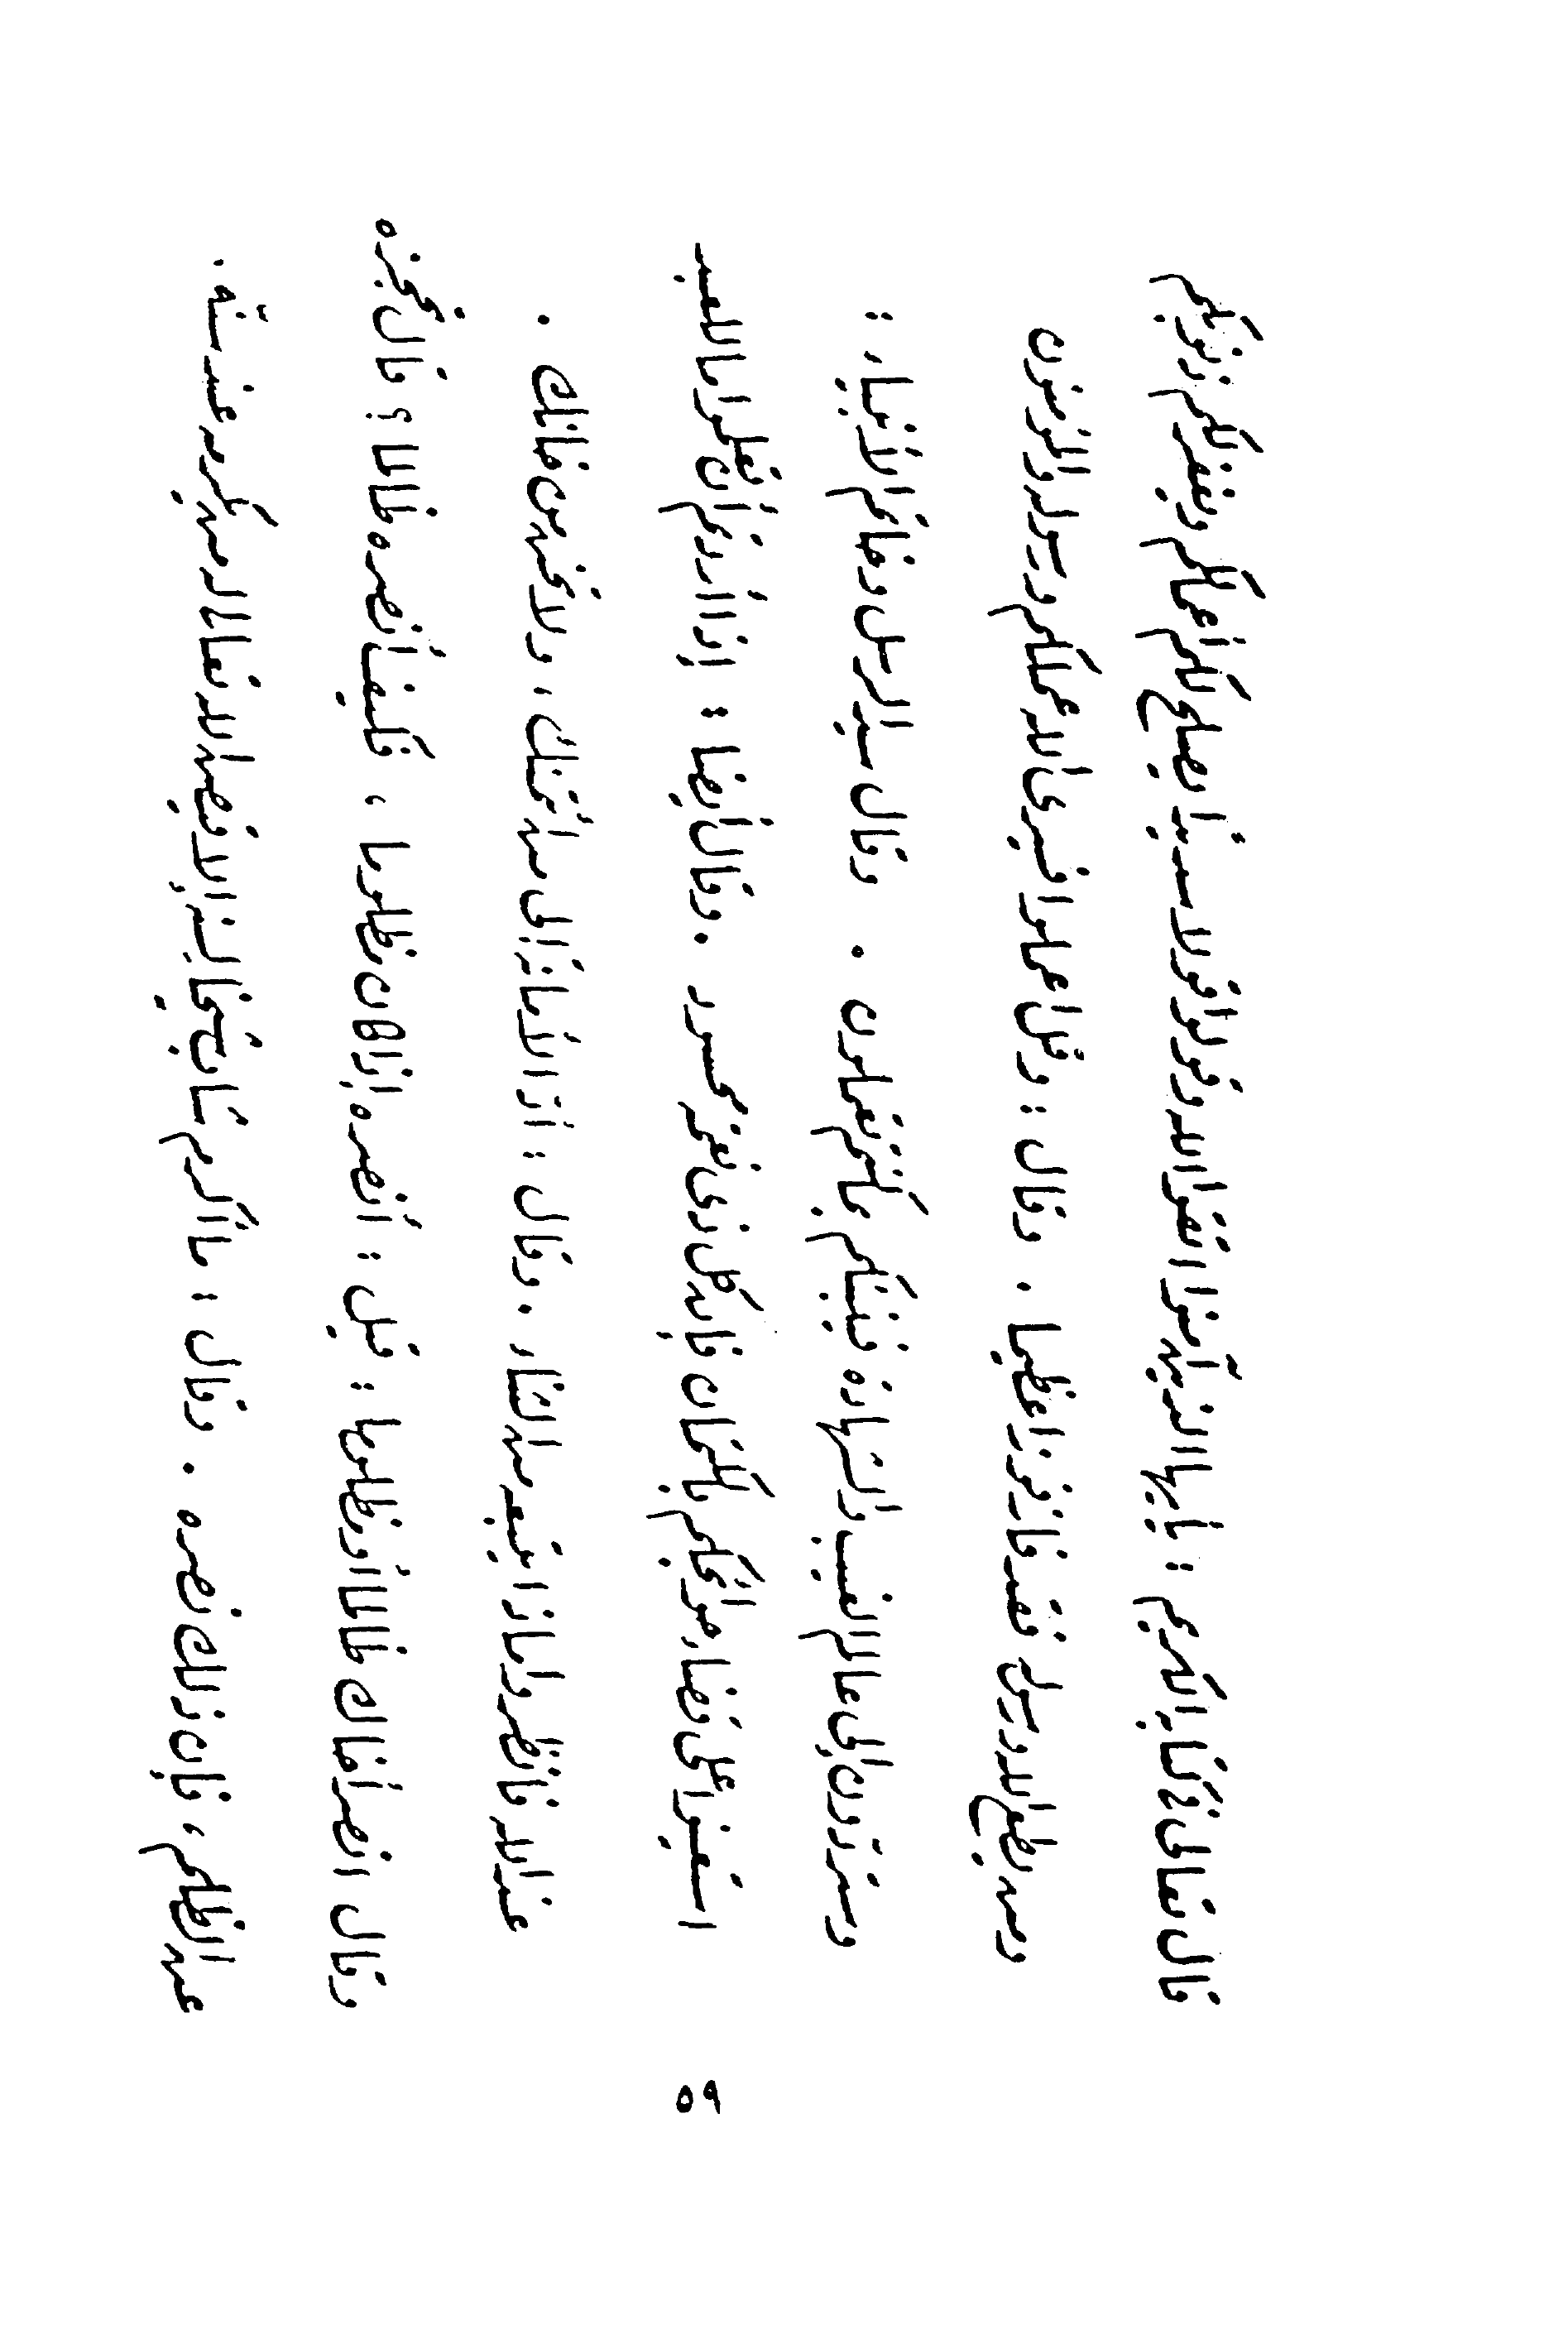 قال تعالى في كتابه الكريم : يا أيها الذين آمنوا اتقوا الله وقولوا قولا سديدا يصلح لكم أعمالكم ويغفر لكم ذنوبكم
ومن يطع الله ورسوله فقد فاز فوزا عظيما . وقال : وقل اعملوا فسيرى الله عملكم ورسوله والمؤمنون
وستردون إلى عالم الغيب والشهادة فينبئكم بما كنتم تعملون . وقال سيد الرسل وخاتم الأنبياء :
استعينوا على قضاء حوائجكم بالكتمان فإنه كل ذي نعمة محسود . وقال أيضا : إذا أردتم أن تعلموا ما للعبد
عند الله فانظروا ماذا يتبعه من الثناء . وقال : أد الأمانة إلى من ائتمنك ، ولا تخن من خانك .
وقال انصر أخاك ظالما أو مظلوما : قيل : أنصره إذا كان مظلوما ، فكيف أنصره ظالما ؟ قال تحجزه
عن الظلم ، فإن ذلك نصره . وقال : ما أكرم شاب شيخا لسنه إلا قيض الله تعالى له من يكرمه عند سنه .
٥٩